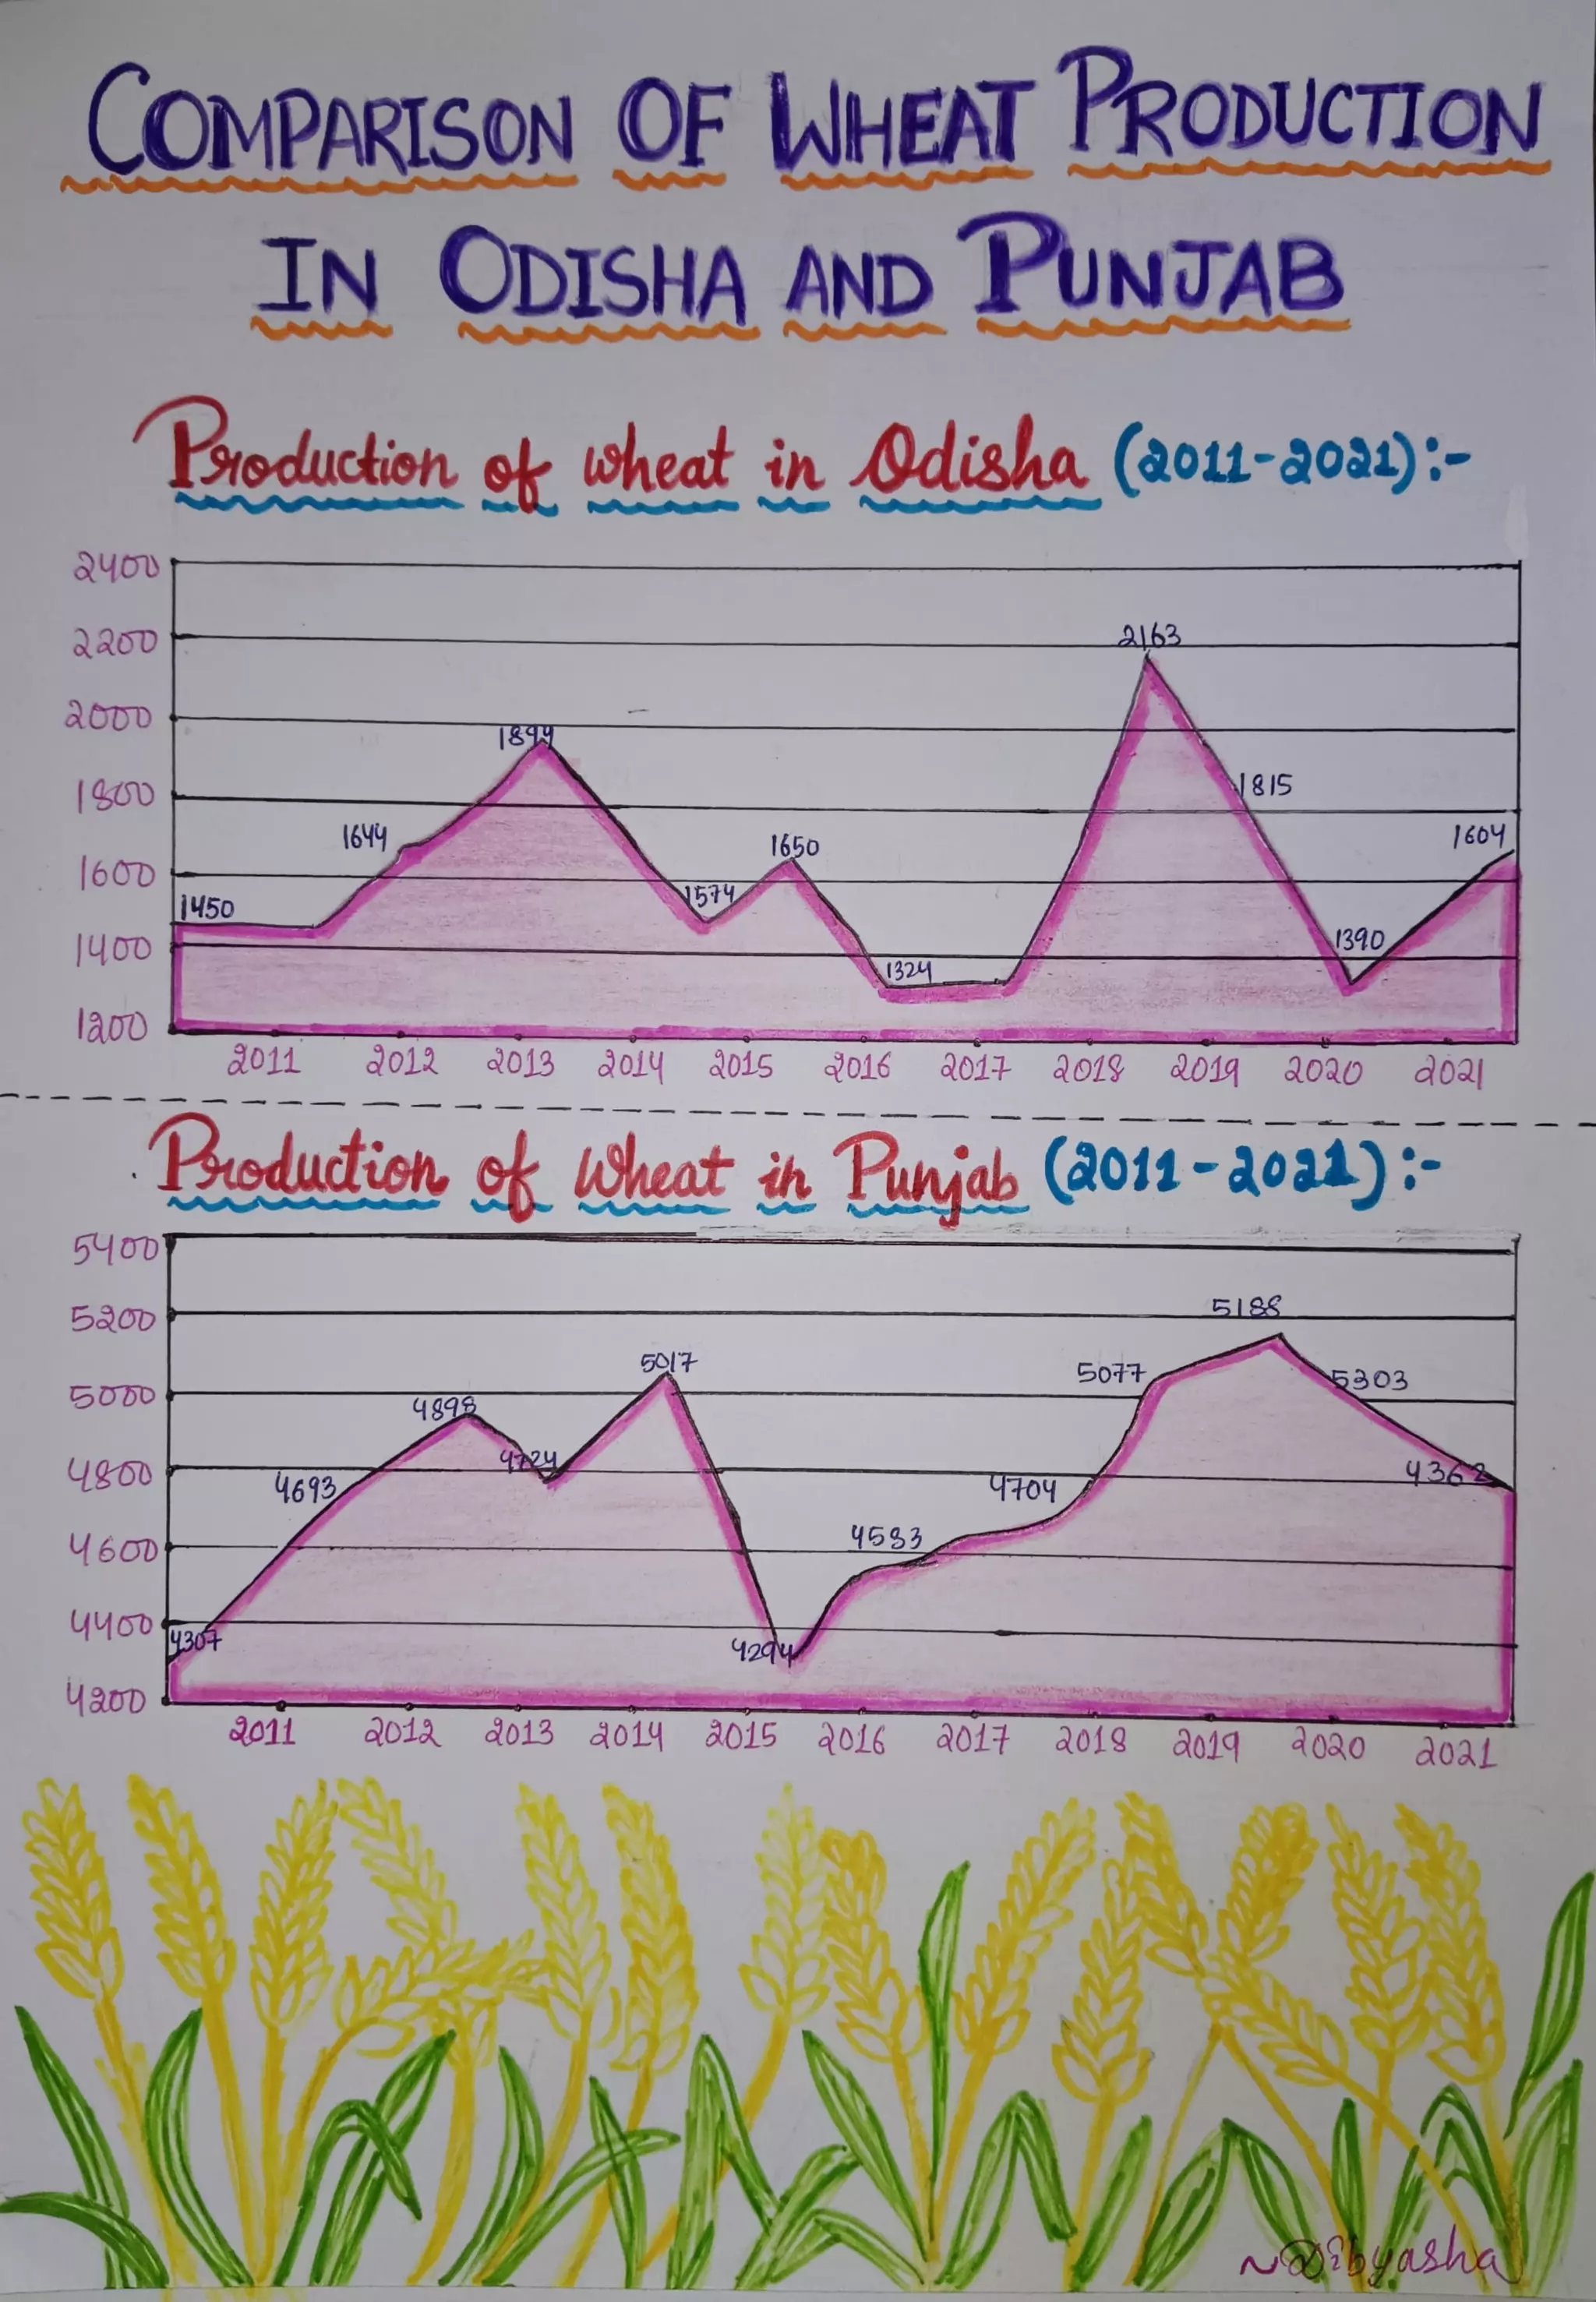 COMPARISON OF WHEAT PRODUCTION
IN ODISHA AND PUNJAB
Production of wheat in Odisha (2011-2021):-
2400
2200
2000
1800
1600
1400
1200
1450
1644
1899
1574
1650
1324
2163
1815
1390
1604
2011 2012 2013 2014 2015 2016 2017 2018 2019 2020 2021
Production of Wheat in Punjab (2011-2021):-
5400
5200
5000
4800
4600
4400
4200
4307
4693
4898
4724
5017
4294
4583
4704
5077
5188
5303
4362
2011 2012 2013 2014 2015 2016 2017 2018 2019 2020 2021
~Dibyasha